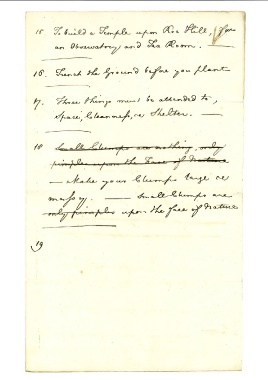 15. To build a Temple upon Roe Hill, for
an Observatory and Tea Room. —
16. Trench the Ground before you plant
17. Three things must be attended to,
Space, Cleanness, & Shelter. —
18 Small Clumps are nothing, only
pimples upon the Face of Nature
— Make your Clumps large &
massy. — Small Clumps are
only pimples upon the face of Nature
19